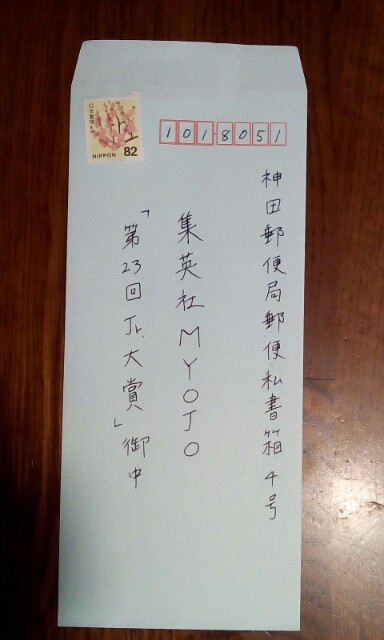 日本郵便
NIPPON 82
1018051
神田郵便局郵便私書箱4号
集英社MYOJO
「第23回Jr.大賞」御中